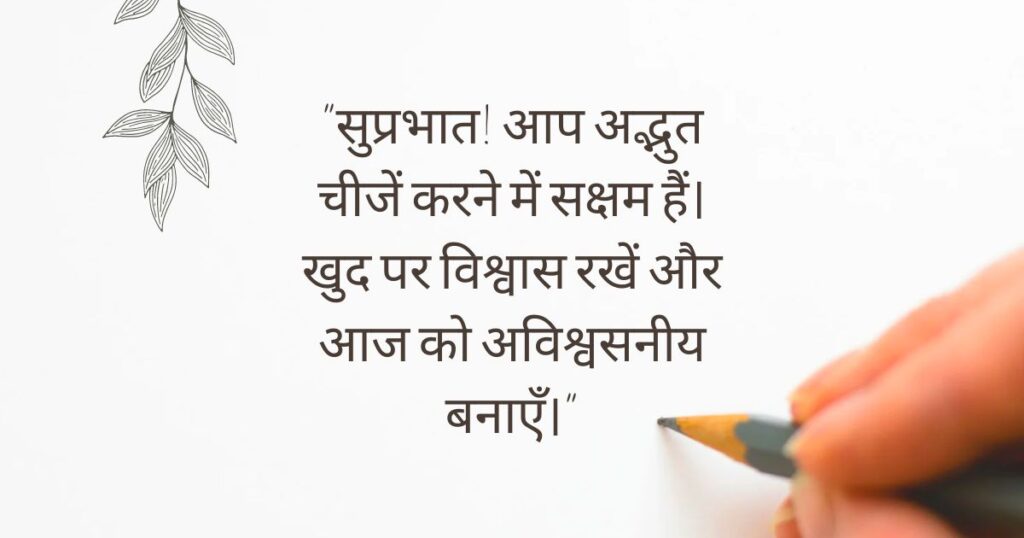 "सुप्रभात! आप अद्भुत
चीजें करने में सक्षम हैं।
खुद पर विश्वास रखें और
आज को अविश्वसनीय
बनाएँ।"